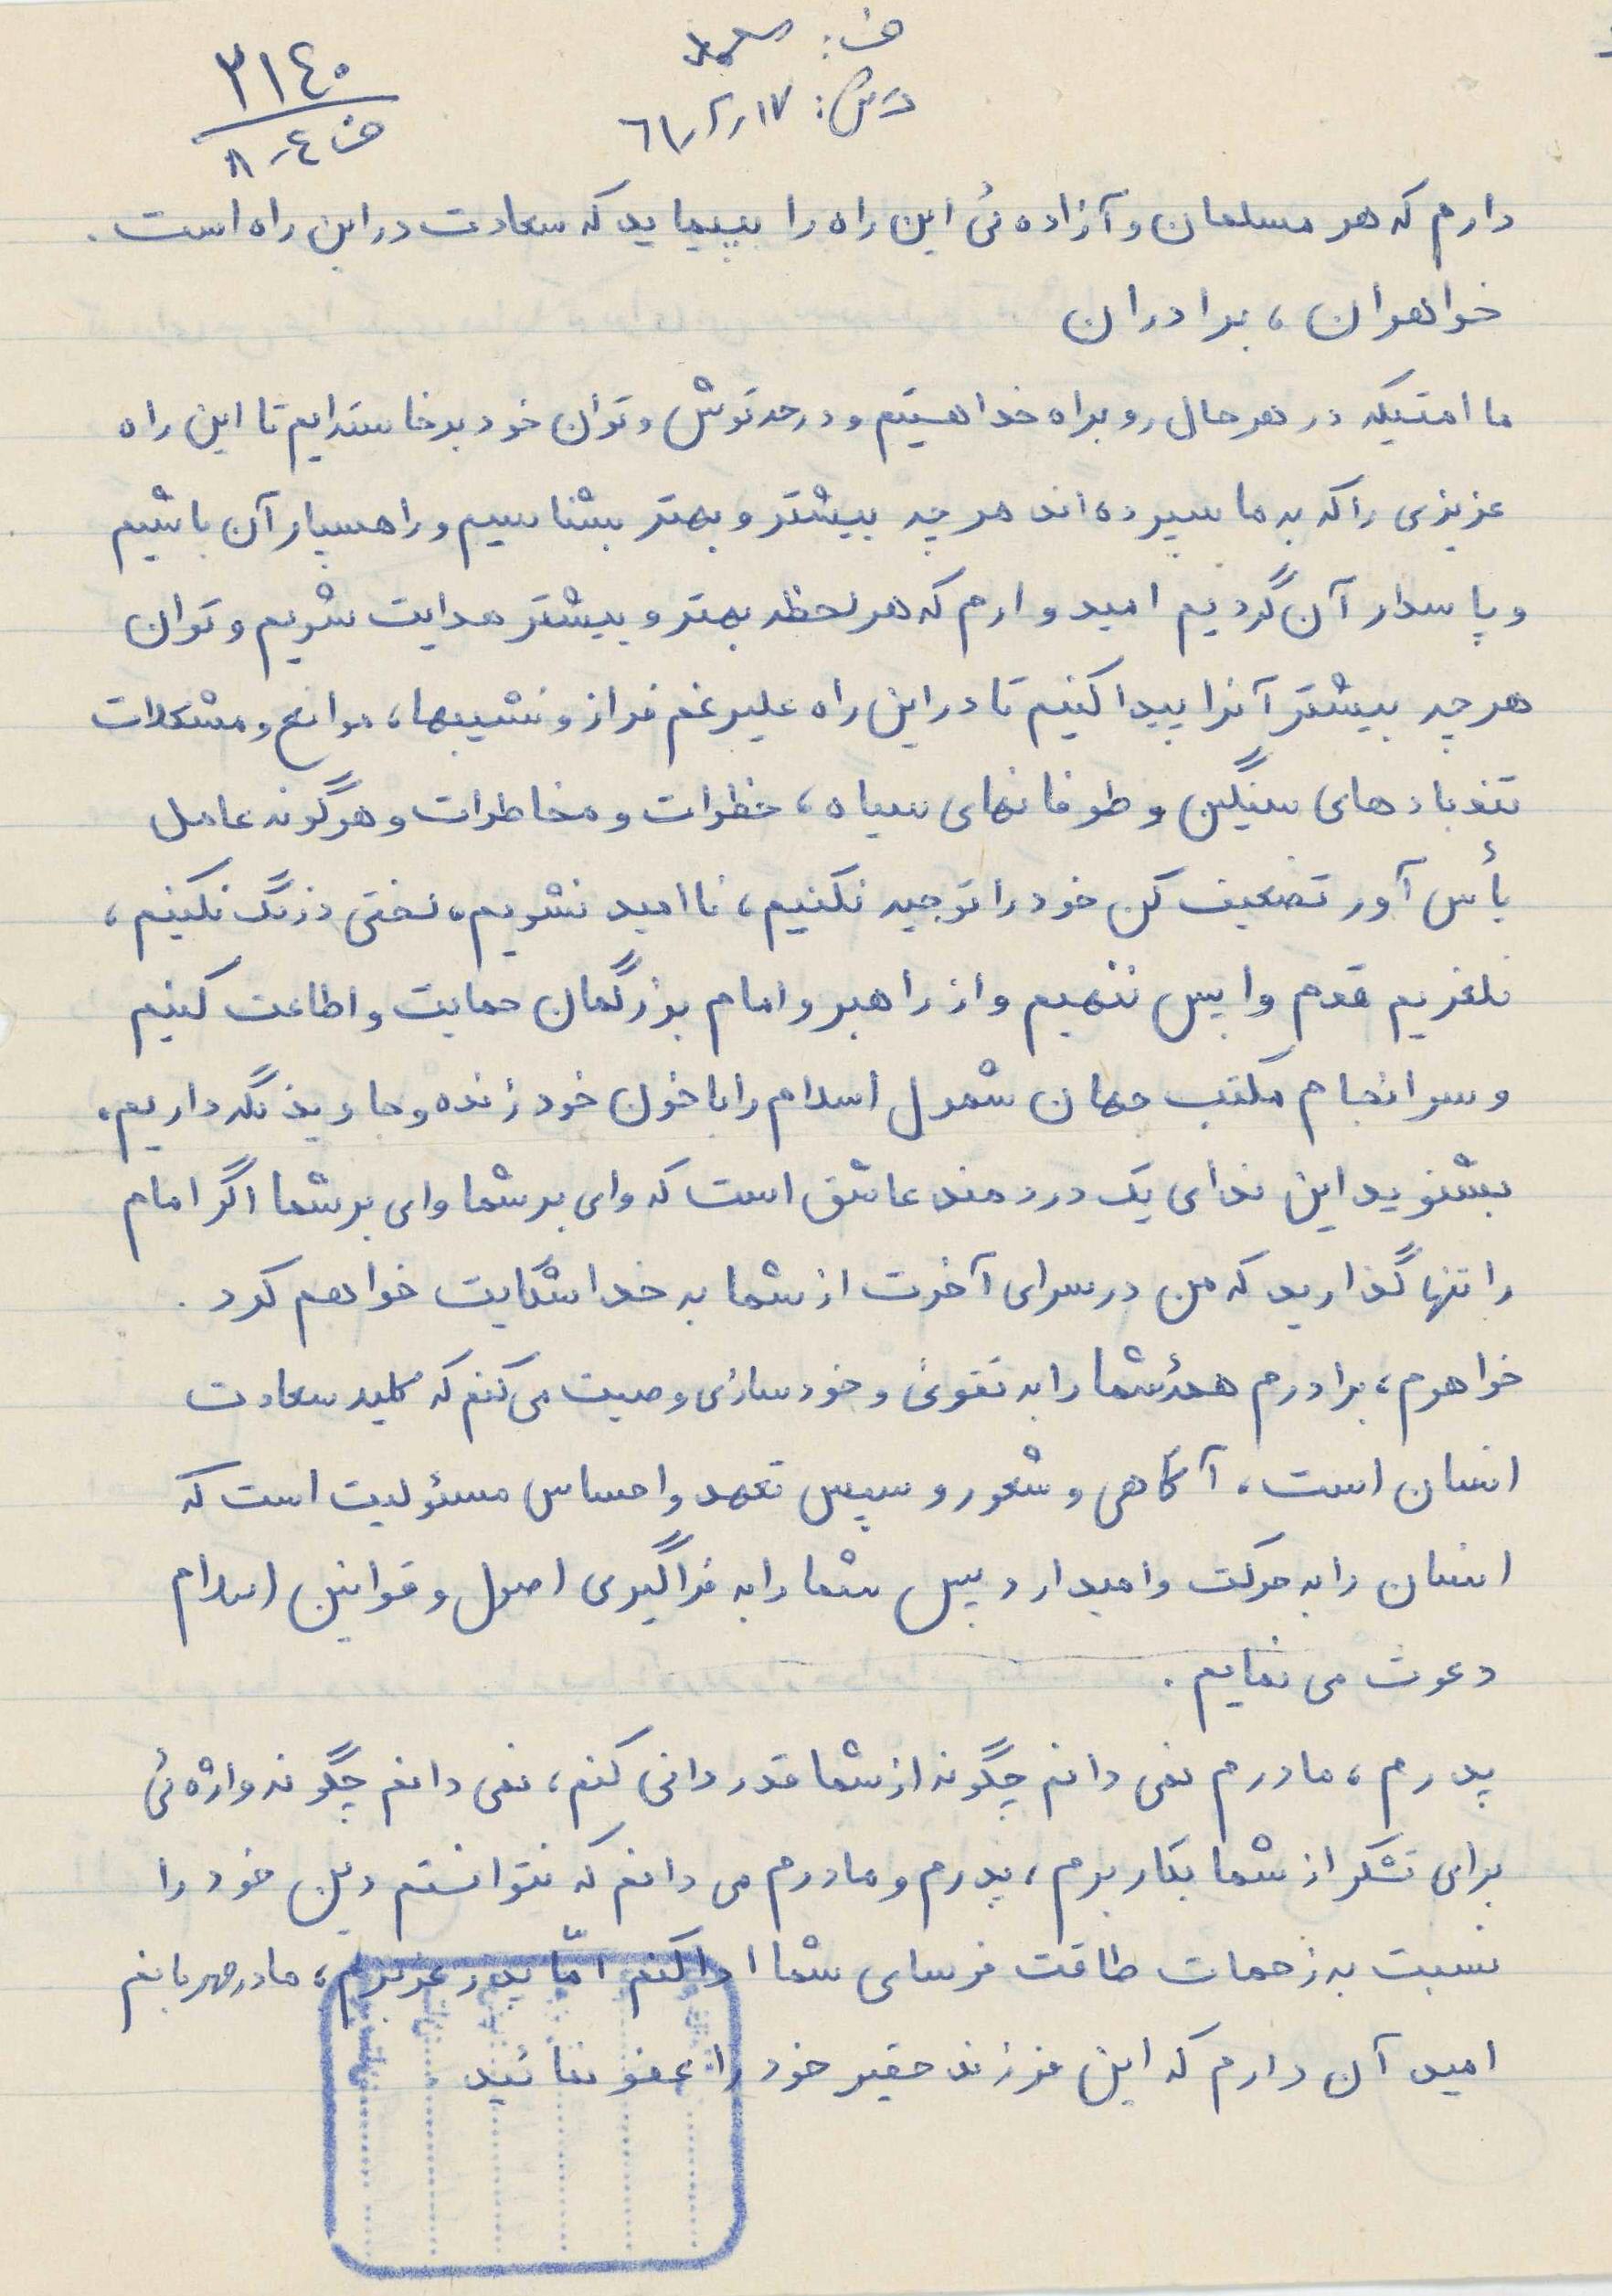 ۳۱٤۰
ف ٤-۸
ف:
۶۱/۲/۱۷
دارم که هر مسلمان و آزاده ئی این راه را بپیماید که سعادت در این راه است.
خواهران، برادران
ما امتیکه در هر حال رو براه خدا هستیم و در حد توش و توان خود برخاسته‌ایم تا این راه
عزیزی را که به ما سپرده‌اند هر چه بیشتر و بهتر بشناسیم و راهسپار آن باشیم
و پاسدار آن گردیم امید وارم که هر لحظه بهتر و بیشتر هدایت شویم و توان
هر چه بیشتر آنرا پیدا کنیم تا در این راه علیرغم فراز و نشیبها، موانع و مشکلات
تندبادهای سنگین و طوفانهای سیاه، خطرات و مخاطرات و هرگونه عامل
یأس آور تضعیف کن خود را توجیه نکنیم، نا امید نشویم، لختی درنگ نکنیم،
نلغزیم قدم واپس ننهیم و از راهبر و امام بزرگمان حمایت و اطاعت کنیم
و سرانجام مکتب جهان شمول اسلام را با خون خود زنده و جاوید نگه داریم.
بشنوید این ندای یک دردمند عاشق است که وای بر شما وای بر شما اگر امام
را تنها گذارید که من در سرای آخرت از شما به خدا شکایت خواهم کرد.
خواهرم، برادرم همهٔ شما را به تقویٰ و خودسازی وصیت می‌کنم که کلید سعادت
انسان است، آگاهی و شعور و سپس تعهد و احساس مسئولیت است که
انسان را به حرکت وامیدارد پس شما را به فراگیری اصول و قوانین اسلام
دعوت می نمایم.
پدرم، مادرم نمی دانم چگونه از شما قدردانی کنم، نمی دانم چگونه واژه ئی
برای تشکر از شما بکار برم، پدرم و مادرم می دانم که نتوانستم دین خود را
نسبت به زحمات طاقت فرسای شما ادا کنم امّا پدر عزیزم، مادر مهربانم
امید آن دارم که این فرزند حقیر خود را عفو نمائید